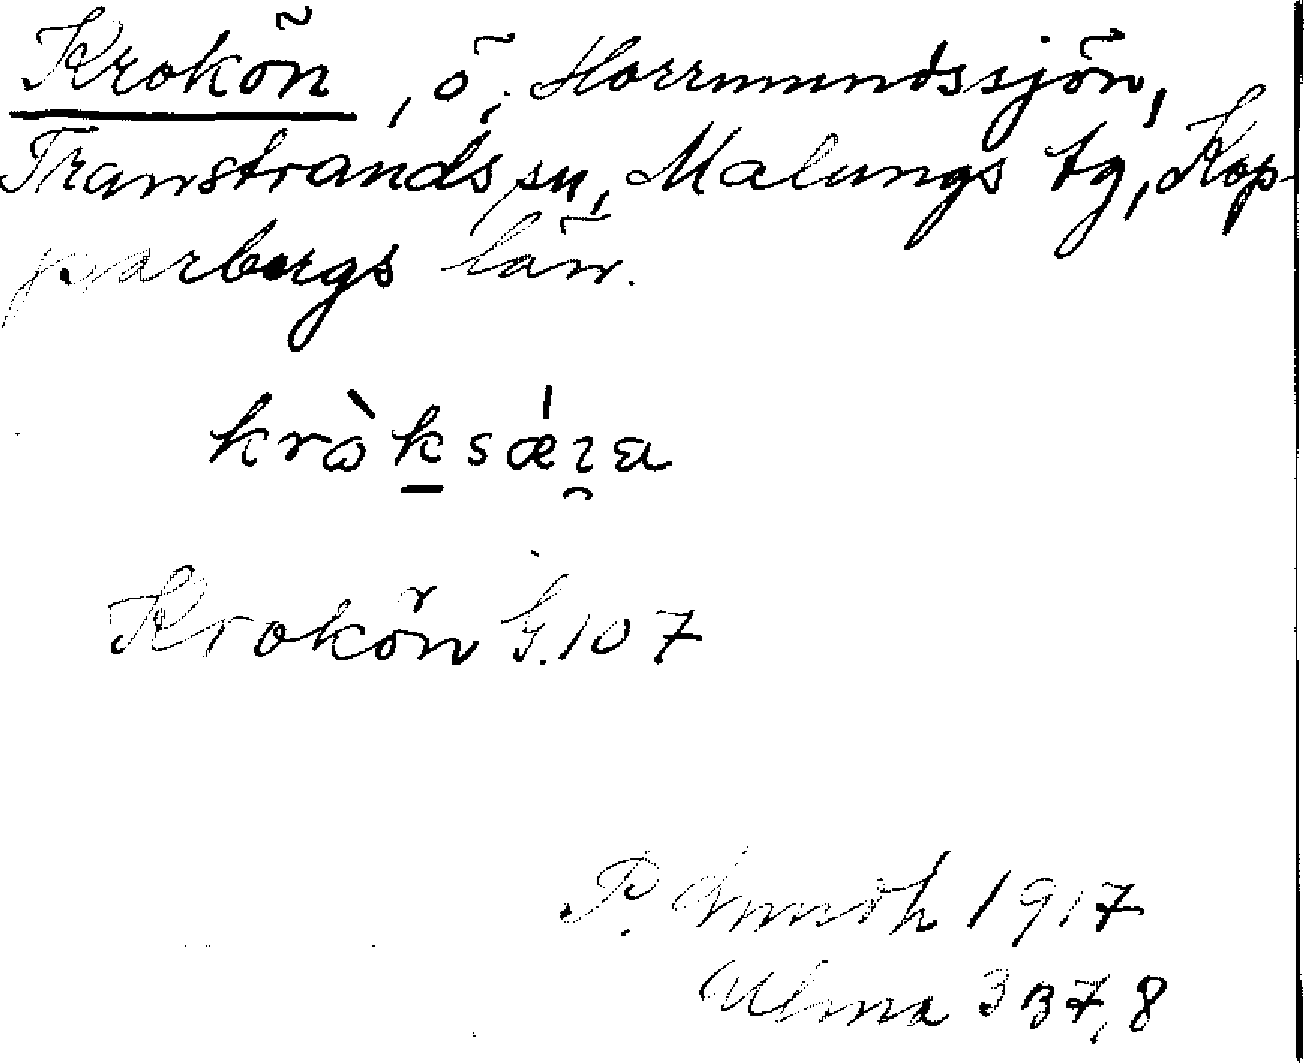 Krokön, ö, Horrmundssjön,
Transtrands sn, Malungs tg, Kop-
parbergs län.
Krokön G.107
P. 1917
Ulma 337,8